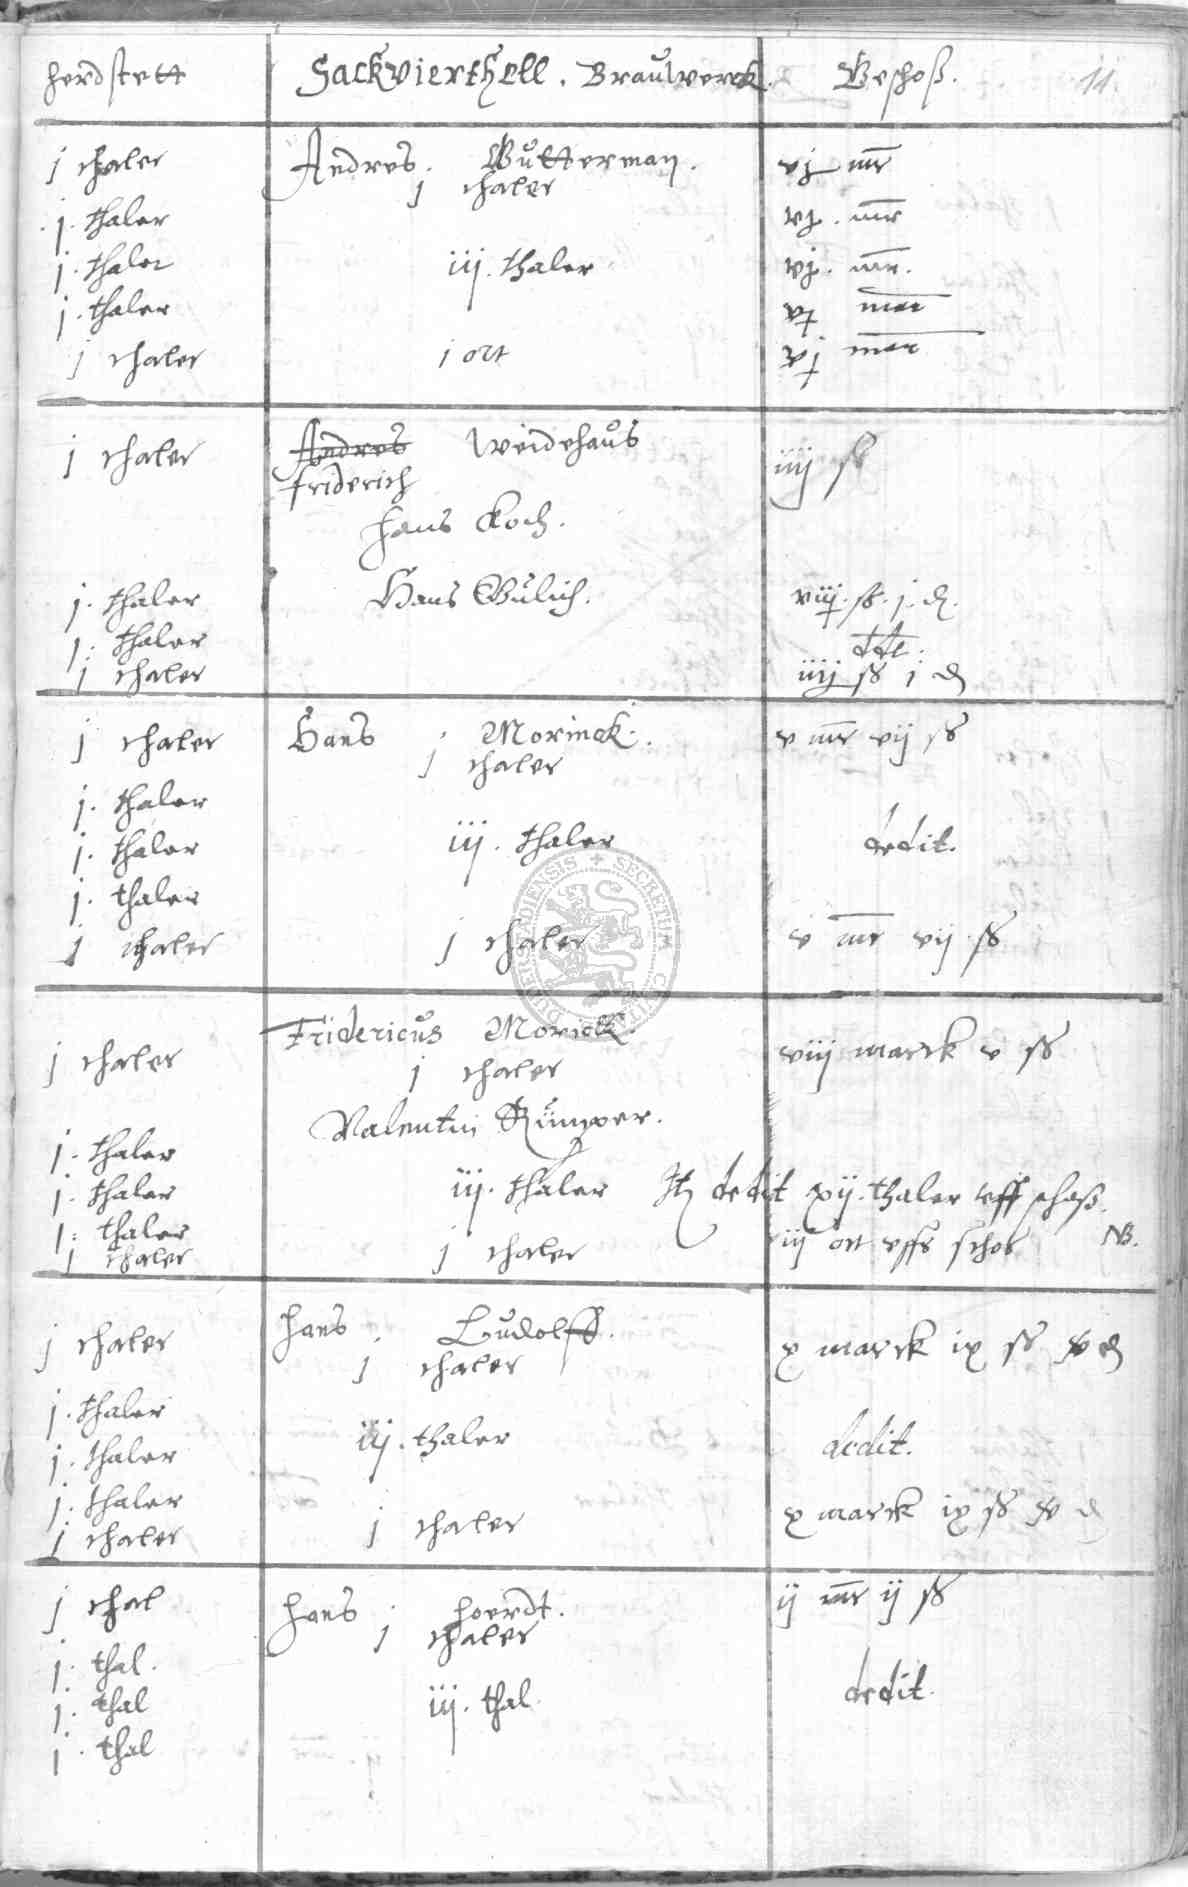 herdstett Sackvierthell. Brauwerck. Beschoß. 11.
j thaler Andres. Butterman. vj mr
j thaler
j. thaler vj. mr
j. thaler iij. thaler vj. mr.
j. thaler vj mar
j thaler j ort vj mar
j thaler Andres Weidehaus iiij ß
friderich
Hans Koch.
j. thaler Hans Gulich. viij. ß. j. d.
j. thaler ddt.
j thaler iiij ß j d
j thaler Hans Morinck. v mr vij ß
j thaler
j. thaler
j. thaler iij. thaler dedit.
j. thaler
j thaler j thaler v mr vij ß
SECRETUM
j thaler Fridericus Morick. viij marck v ß
j thaler
Valentin Rumper.
j. thaler
j. thaler iij. thaler It dedit xij. thaler vff schoß.
j. thaler j thaler iij ort vffs schos NB.
j thaler
j thaler Hans Ludolff. x marck ix ß d
j thaler
j. thaler
j. thaler iij. thaler dedit.
j. thaler
j thaler j thaler x marck ix ß d
j thal Hans hoerdt. ij mr ij ß
j thaler
j. thal.
j. thal iij. thal. dedit.
j. thal